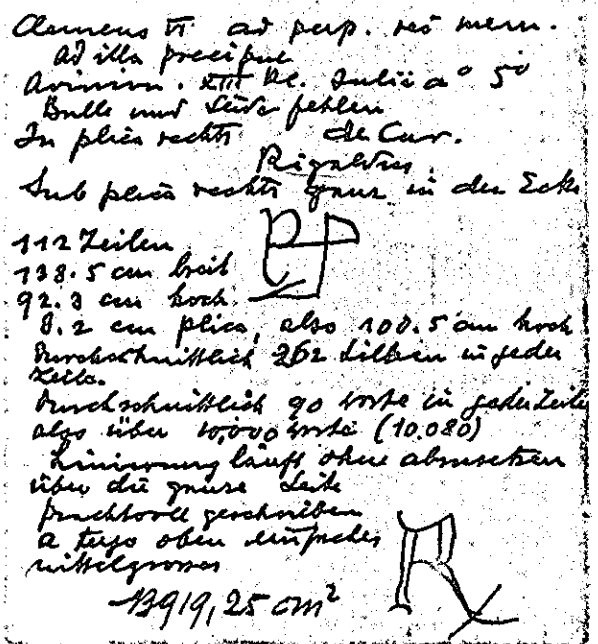 Clemens VI ad perp. rei mem.
Ad illa precipue
Avinion. XIII Kl. Julii a° 5°
Bulle und Seide fehlen
In plica rechts de Cur.
Rigaldus
Sub plica rechts ganz in der Ecke
112 Zeilen
138.5 cm breit
92.3 cm hoch
8.2 cm plica, also 100.5 cm hoch
Durchschnittlich 262 Silben in jeder
Zeile.
Durchschnittlich 90 Worte in jeder Zeile
also über 10,000 Worte (10.080)
Liniierung läuft ohne abzusetzen
über die ganze Seite
prachtvoll geschrieben
a tergo oben einfaches
mittelgrosses R
13919,25 cm²